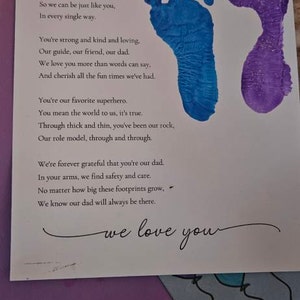 So we can be just like you,
In every single way.
You're strong and kind and loving,
Our guide, our friend, our dad.
We love you more than words can say,
And cherish all the fun times we've had.
You're our favorite superhero.
You mean the world to us, it's true.
Through thick and thin, you've been our rock,
Our role model, through and through.
We're forever grateful that you're our dad.
In your arms, we find safety and care.
No matter how big these footprints grow,
We know our dad will always be there.
we love you